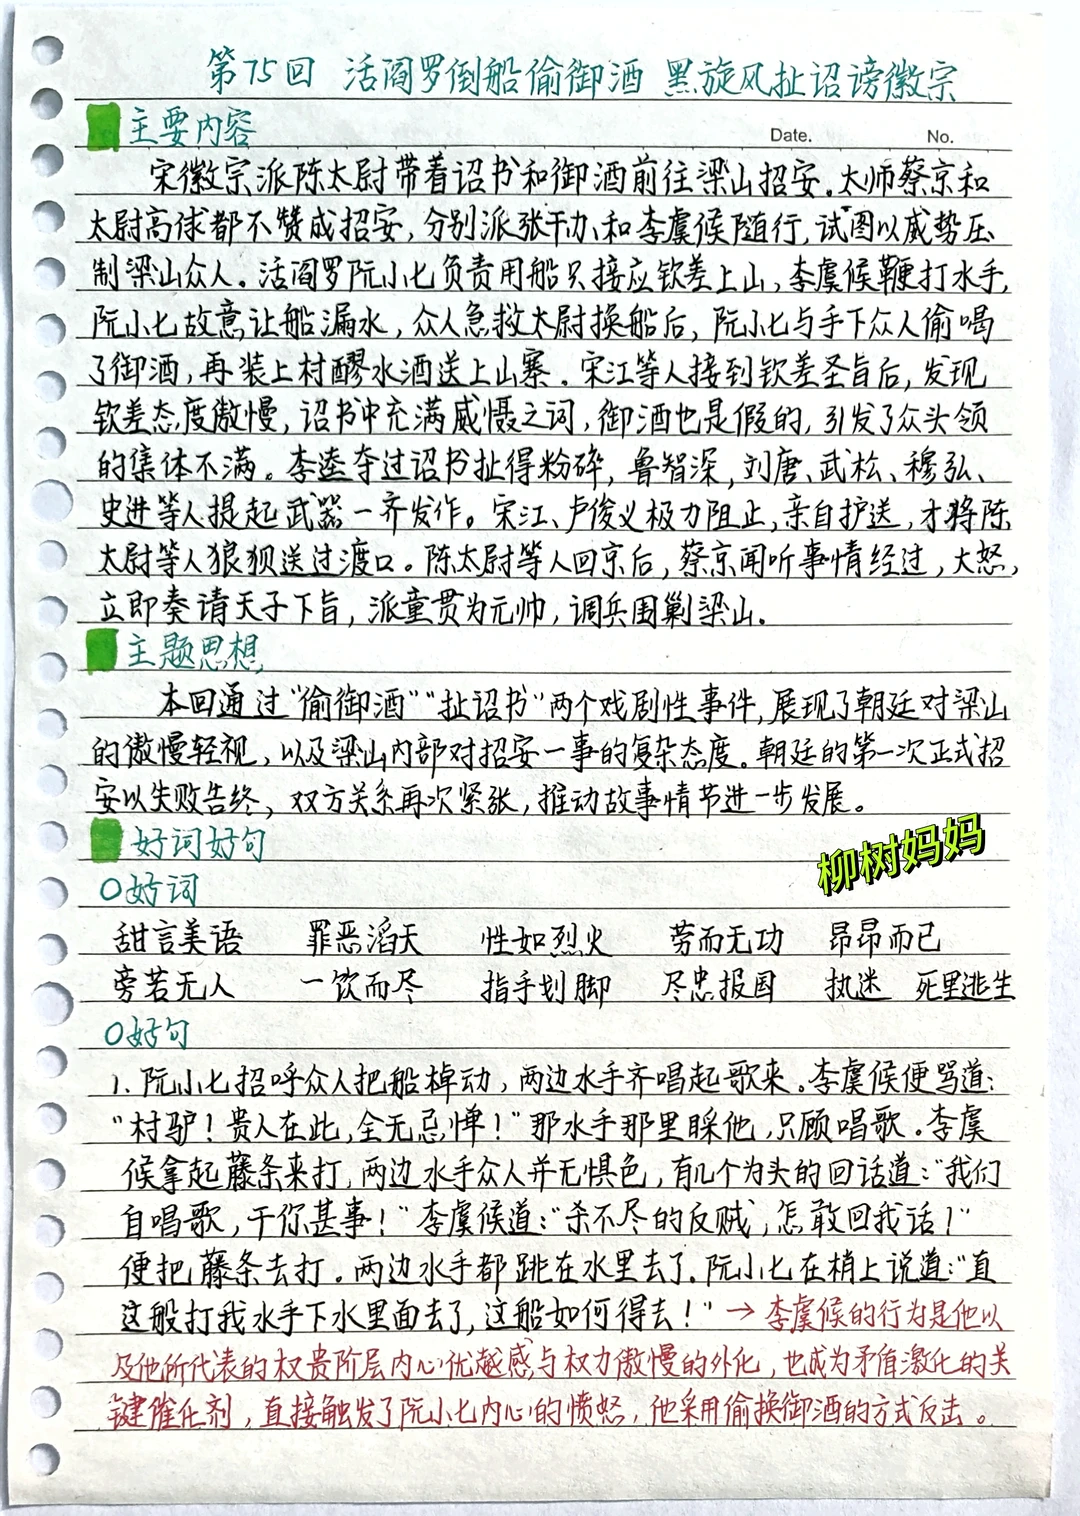 第75回 活阎罗倒船偷御酒 黑旋风扯诏谤徽宗
主要内容
Date. No.
宋徽宗派陈太尉带着诏书和御酒前往梁山招安。太师蔡京和
太尉高俅都不赞成招安，分别派张干办和李虞候随行，试图以威势压
制梁山众人。活阎罗阮小七负责用船只接应钦差上山，李虞候鞭打水手，
阮小七故意让船漏水，众人急救太尉换船后，阮小七与手下众人偷喝
了御酒，再装上村醪水酒送上山寨。宋江等人接到钦差圣旨后，发现
钦差态度傲慢，诏书中充满威慑之词，御酒也是假的，引发了众头领
的集体不满。李逵夺过诏书扯得粉碎，鲁智深，刘唐、武松、穆弘、
史进等人提起武器一齐发作。宋江、卢俊义极力阻止，亲自护送，才将陈
太尉等人狼狈送过渡口。陈太尉等人回京后，蔡京闻听事情经过，大怒，
立即奏请天子下旨，派童贯为元帅，调兵围剿梁山。
主题思想
本回通过“偷御酒”“扯诏书”两个戏剧性事件，展现了朝廷对梁山
的傲慢轻视，以及梁山内部对招安一事的复杂态度。朝廷的第一次正式招
安以失败告终，双方关系再次紧张，推动故事情节进一步发展。
好词好句
柳树妈妈
○好词
甜言美语 罪恶滔天 性如烈火 劳而无功 昂昂而已
旁若无人 一饮而尽 指手划脚 尽忠报国 执迷 死里逃生
○好句
1. 阮小七招呼众人把船棹动，两边水手齐唱起歌来。李虞候便骂道：
“村驴！贵人在此，全无忌惮！”那水手那里睬他，只顾唱歌。李虞
候拿起藤条来打，两边水手众人并无惧色，有几个为头的回话道：“我们
自唱歌，干你甚事！”李虞候道：“杀不尽的反贼，怎敢回我话！”
便把藤条去打。两边水手都跳在水里去了。阮小七在梢上说道：“直
这般打我水手下水里面去了，这船如何得去！”→李虞候的行为是他以
及他所代表的权贵阶层内心优越感与权力傲慢的外化，也成为矛盾激化的关
键催化剂，直接触发了阮小七内心的愤怒，他采用偷换御酒的方式反击。